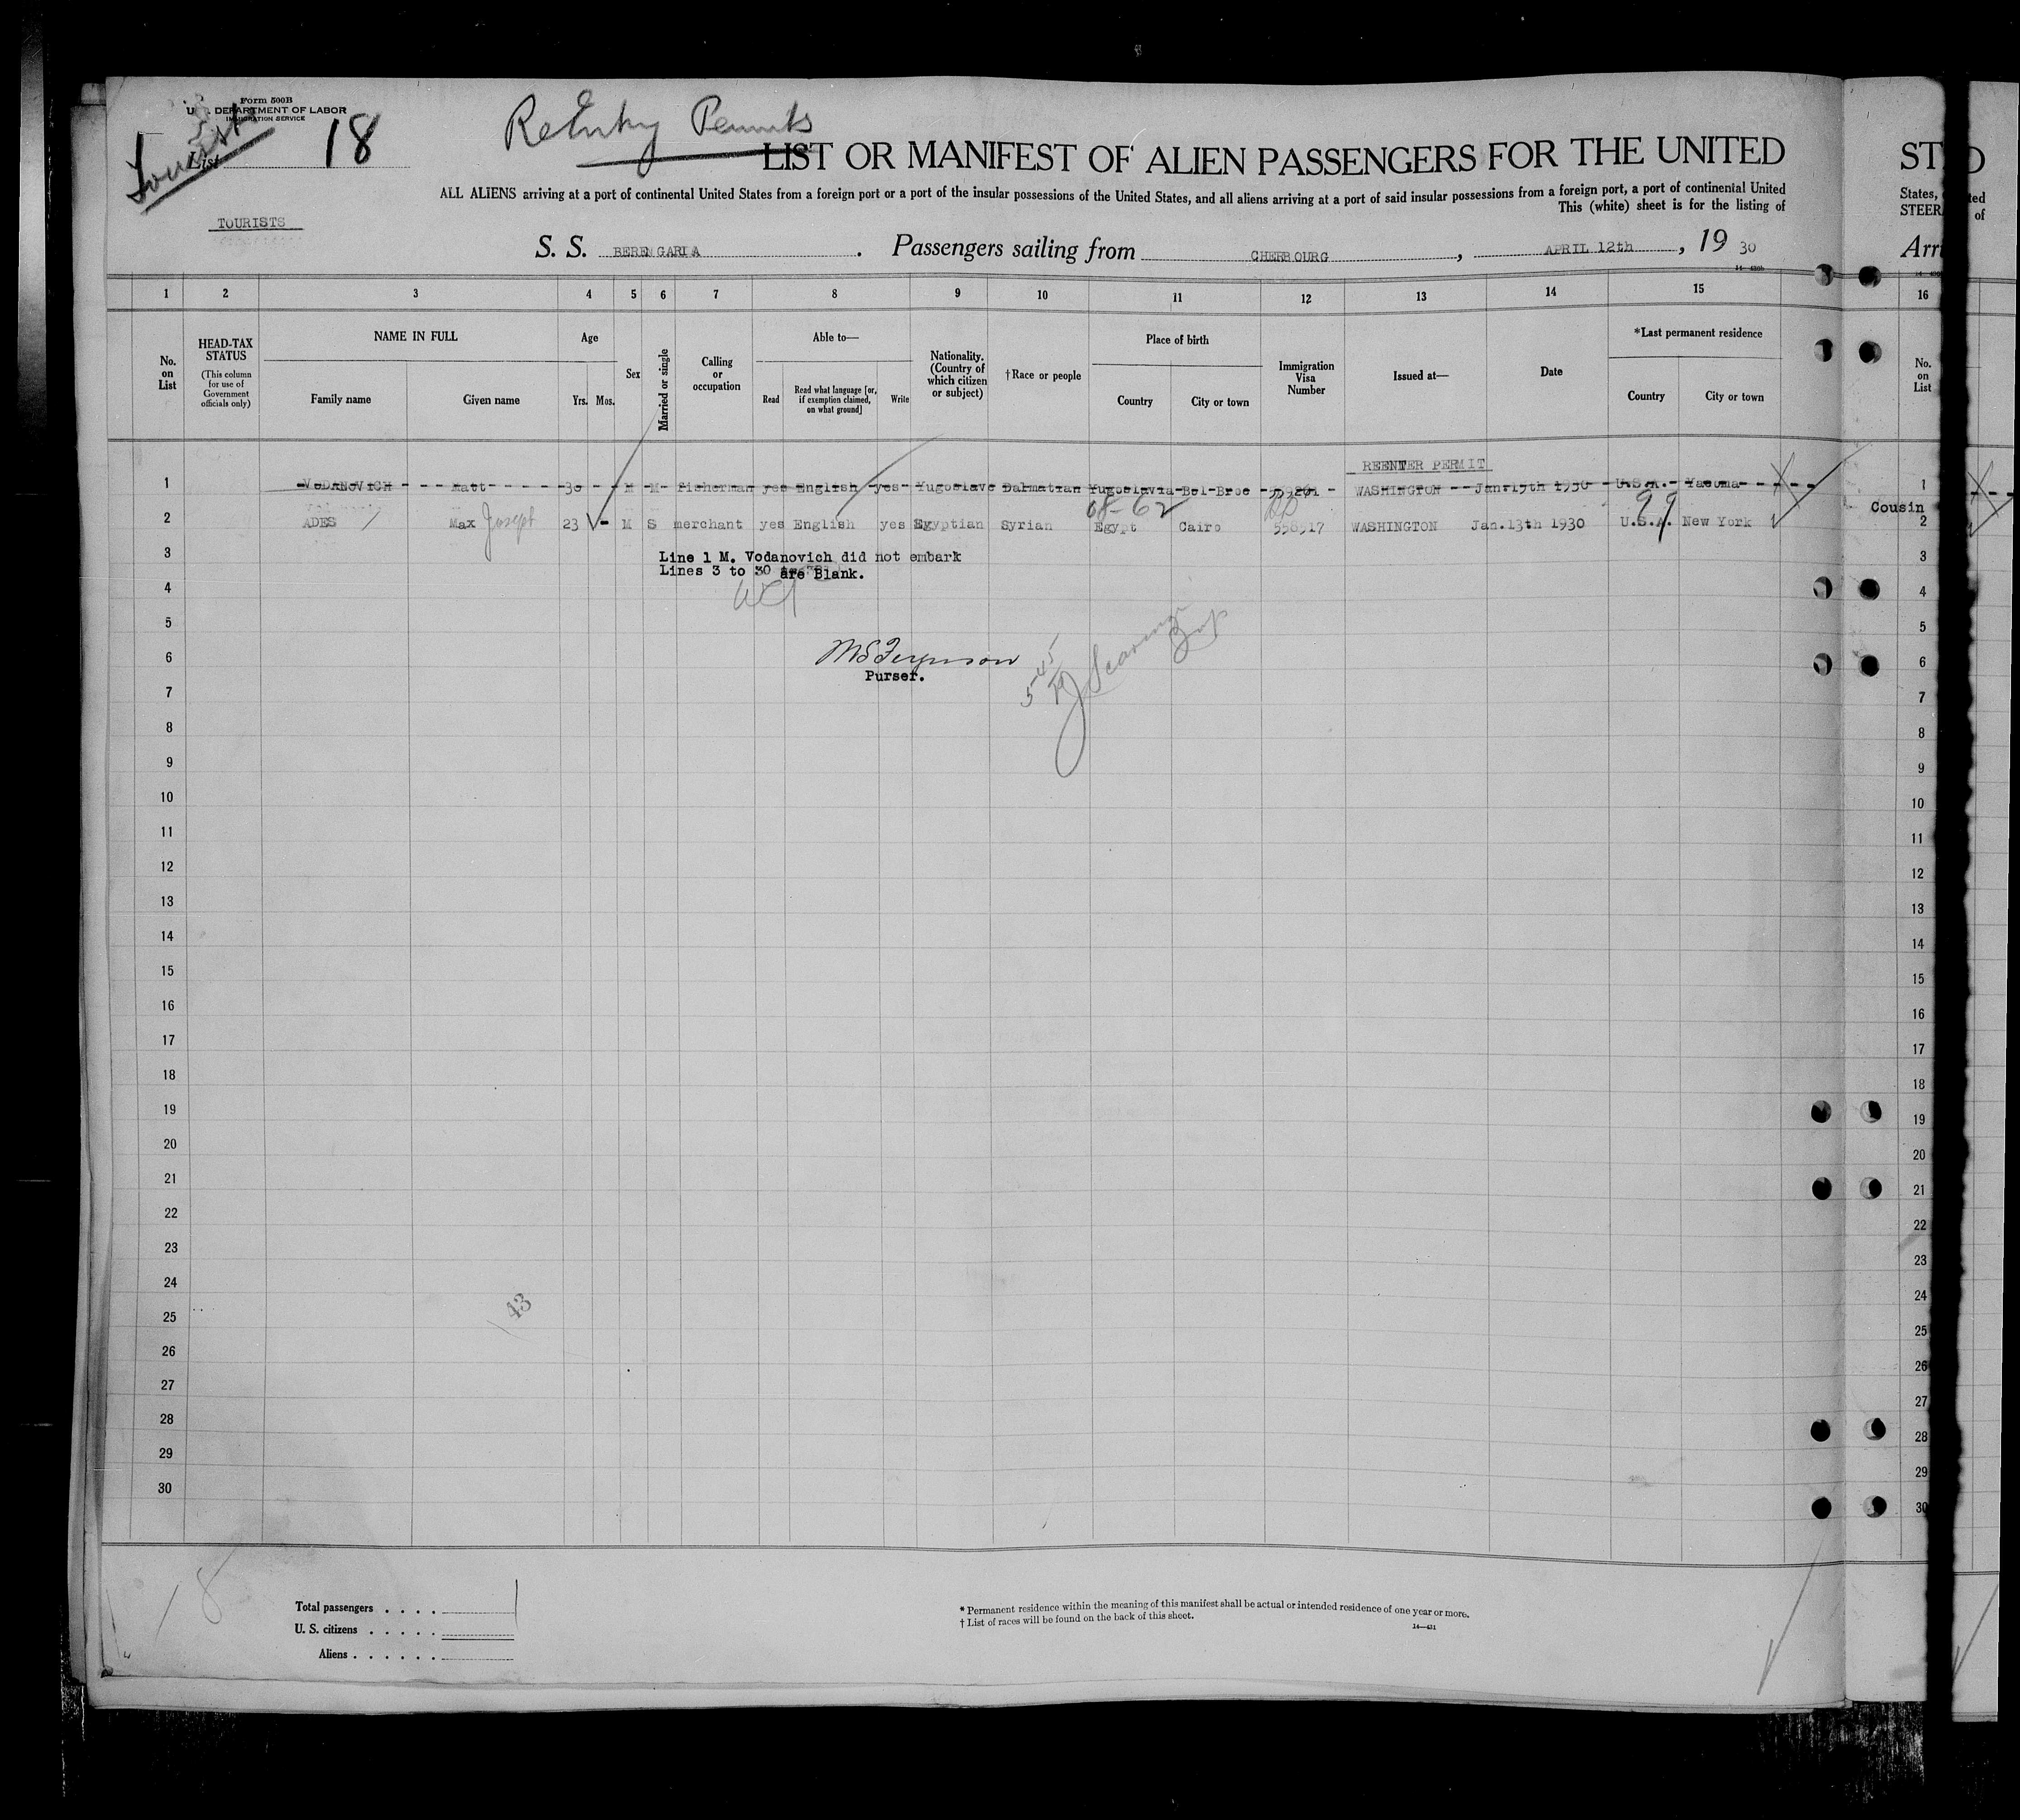 Form 500B
U. S. DEPARTMENT OF LABOR
IMMIGRATION SERVICE
Tourist
List 18
ReEntry Permits
LIST OR MANIFEST OF ALIEN PASSENGERS FOR THE UNITED
ALL ALIENS arriving at a port of continental United States from a foreign port or a port of the insular possessions of the United States, and all aliens arriving at a port of said insular possessions from a foreign port, a port of continental United
This (white) sheet is for the listing of
TOURISTS
S. S. BERENGARIA. Passengers sailing from CHERBOURG, APRIL 12th, 19 30
ST D
States, ted
STEER of
Arri
1 2 3 4 5 6 7 8 9 10 11 12 13 14 15 16
No. on List
HEAD-TAX STATUS
(This column for use of Government officials only)
NAME IN FULL
Family name Given name
Age
Yrs. Mos.
Sex
Married or single
Calling or occupation
Able to—
Read Read what language [or, if exemption claimed, on what ground] Write
Nationality. (Country of which citizen or subject)
†Race or people
Place of birth
Country City or town
Immigration Visa Number
Issued at—
Date
*Last permanent residence
Country City or town
No. on List
REENTER PERMIT
1 VODANOVICH Matt 30 M M Fisherman yes English yes Yugoslave Dalmatian Yugoslavia WASHINGTON Jan. 1930 U.S.A. 1
08-62 99
2 ADES Max Joseph 23 M S merchant yes English yes Egyptian Syrian Egypt Cairo 558517 WASHINGTON Jan.13th 1930 U.S.A. New York Cousin 2
3 Line 1 M. Vodanovich did not embark 3
Lines 3 to 30 are Blank.
4 4
5 5
6 MS Ferguson 6
Purser.
7 7
8 8
9 9
10 10
11 11
12 12
13 13
14 14
15 15
16 16
17 17
18 18
19 19
20 20
21 21
22 22
23 23
24 24
43
25 25
26 26
27 27
28 28
29 29
30 30
18
Total passengers . . . .
U. S. citizens . . . . .
Aliens . . . . . .
* Permanent residence within the meaning of this manifest shall be actual or intended residence of one year or more.
† List of races will be found on the back of this sheet.
14—431